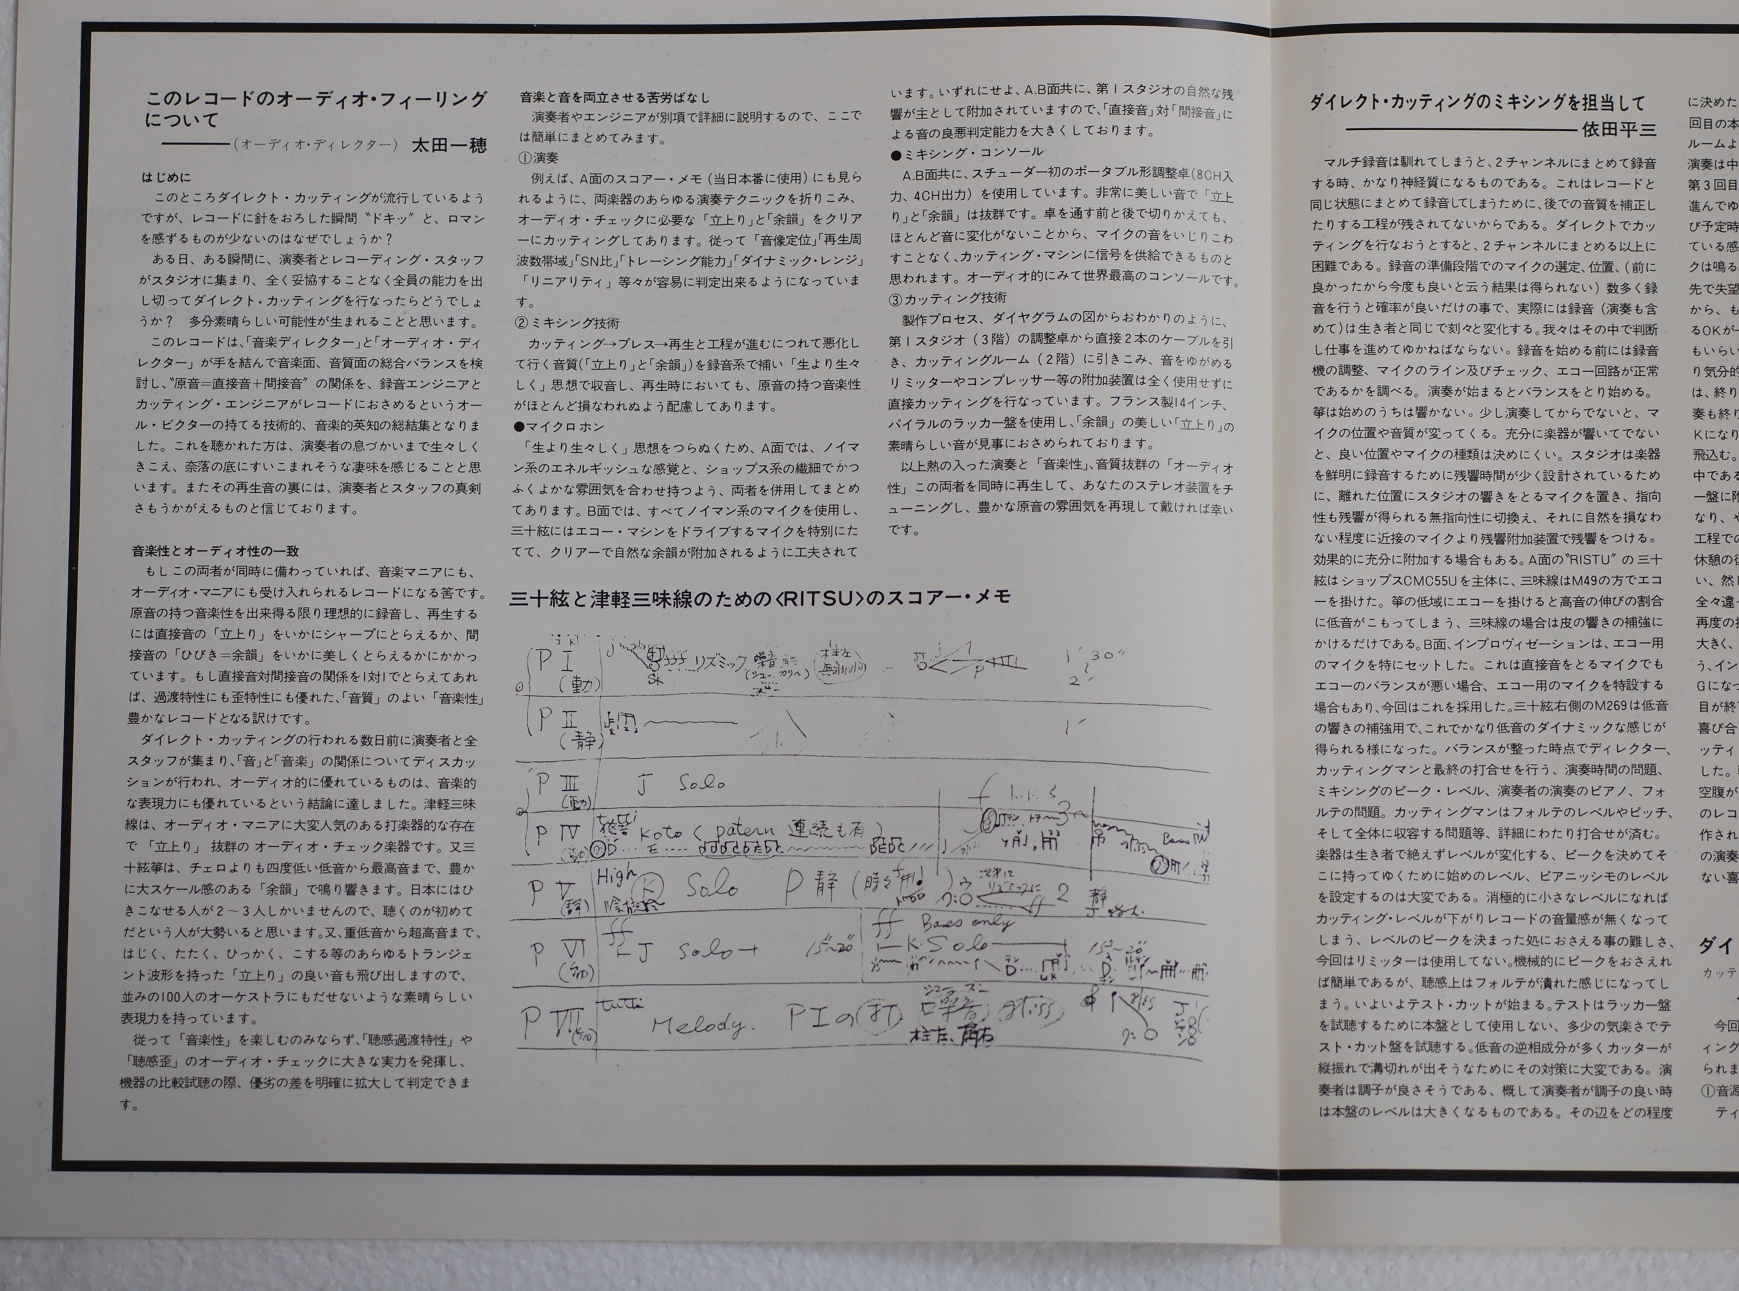 このレコードのオーディオ・フィーリング
について
(オーディオ・ディレクター) 太田一穂
はじめに
このところダイレクト・カッティングが流行しているよう
ですが、レコードに針をおろした瞬間〝ドキッ〟と、ロマン
を感ずるものが少ないのはなぜでしょうか?
ある日、ある瞬間に、演奏者とレコーディング・スタッフ
がスタジオに集まり、全く妥協することなく全員の能力を出
し切ってダイレクト・カッティングを行なったらどうでしょ
うか? 多分素晴らしい可能性が生まれることと思います。
このレコードは、「音楽ディレクター」と「オーディオ・ディ
レクター」が手を結んで音楽面、音質面の総合バランスを検
討し、〝原音=直接音+間接音〟の関係を、録音エンジニアと
カッティング・エンジニアがレコードにおさめるというオー
ル・ビクターの持てる技術的、音楽的英知の総結集となりま
した。これを聴かれた方は、演奏者の息づかいまで生々しく
きこえ、奈落の底にすいこまれそうな凄味を感じることと思
います。またその再生音の裏には、演奏者とスタッフの真剣
さもうかがえるものと信じております。
音楽性とオーディオ性の一致
もしこの両者が同時に備わっていれば、音楽マニアにも、
オーディオ・マニアにも受け入れられるレコードになる筈です。
原音の持つ音楽性を出来得る限り理想的に録音し、再生する
には直接音の「立上り」をいかにシャープにとらえるか、間
接音の「ひびき=余韻」をいかに美しくとらえるかにかかっ
ています。もし直接音対間接音の関係を1対1でとらえてあれ
ば、過渡特性にも歪特性にも優れた、「音質」のよい「音楽性」
豊かなレコードとなる訳けです。
ダイレクト・カッティングの行われる数日前に演奏者と全
スタッフが集まり、「音」と「音楽」の関係についてディスカッ
ションが行われ、オーディオ的に優れているものは、音楽的
な表現力にも優れているという結論に達しました。津軽三味
線は、オーディオ・マニアに大変人気のある打楽器的な存在
で「立上り」抜群の オーディオ・チェック楽器です。又三
十絃箏は、チェロよりも四度低い低音から最高音まで、豊か
に大スケール感のある「余韻」で鳴り響きます。日本にはひ
きこなせる人が2~3人しかいませんので、聴くのが初めて
だという人が大勢いると思います。又、重低音から超高音まで、
はじく、たたく、ひっかく、こする等のあらゆるトランジェ
ント波形を持った「立上り」の良い音も飛び出しますので、
並みの100人のオーケストラにもだせないような素晴らしい
表現力を持っています。
従って「音楽性」を楽しむのみならず、「聴感過渡特性」や
「聴感歪」のオーディオ・チェックに大きな実力を発揮し、
機器の比較試聴の際、優劣の差を明確に拡大して判定できま
す。
音楽と音を両立させる苦労ばなし
演奏者やエンジニアが別項で詳細に説明するので、ここで
は簡単にまとめてみます。
①演奏
例えば、A面のスコアー・メモ(当日本番に使用)にも見ら
れるように、両楽器のあらゆる演奏テクニックを折りこみ、
オーディオ・チェックに必要な「立上り」と「余韻」をクリア
ーにカッティングしてあります。従って「音像定位」「再生周
波数帯域」「SN比」「トレーシング能力」「ダイナミック・レンジ」
「リニアリティ」等々が容易に判定出来るようになっていま
す。
②ミキシング技術
カッティング→プレス→再生と工程が進むにつれて悪化し
て行く音質(「立上り」と「余韻」)を録音系で補い「生より生々
しく」思想で収音し、再生時においても、原音の持つ音楽性
がほとんど損なわれぬよう配慮してあります。
●マイクロホン
「生より生々しく」思想をつらぬくため、A面では、ノイマ
ン系のエネルギッシュな感覚と、ショップス系の繊細でかつ
ふくよかな雰囲気を合わせ持つよう、両者を併用してまとめ
てあります。B面では、すべてノイマン系のマイクを使用し、
三十絃にはエコー・マシンをドライブするマイクを特別にた
てて、クリアーで自然な余韻が附加されるように工夫されて
います。いずれにせよ、A.B面共に、第1スタジオの自然な残
響が主として附加されていますので、「直接音」対「間接音」に
よる音の良悪判定能力を大きくしております。
●ミキシング・コンソール
A.B面共に、スチューダー初のポータブル形調整卓(8CH入
力、4CH出力)を使用しています。非常に美しい音で「立上
り」と「余韻」は抜群です。卓を通す前と後で切りかえても、
ほとんど音に変化がないことから、マイクの音をいじりこわ
すことなく、カッティング・マシンに信号を供給できるものと
思われます。オーディオ的にみて世界最高のコンソールです。
③カッティング技術
製作プロセス、ダイヤグラムの図からおわかりのように、
第1スタジオ(3階)の調整卓から直接2本のケーブルを引
き、カッティングルーム(2階)に引きこみ、音をゆがめる
リミッターやコンプレッサー等の附加装置は全く使用せずに
直接カッティングを行なっています。フランス製14インチ、
パイラルのラッカー盤を使用し、「余韻」の美しい「立上り」の
素晴らしい音が見事におさめられております。
以上熱の入った演奏と「音楽性」、音質抜群の「オーディオ
性」この両者を同時に再生して、あなたのステレオ装置をチ
ューニングし、豊かな原音の雰囲気を再現して戴ければ幸い
です。
三十絃と津軽三味線のための〈RITSU〉のスコアー・メモ
P I (動) リズミック 噪音 1' 30" 2'
P II (静) 1'
P III (動) J Solo
P IV tutti Koto (patern 連続も有)
P V (静) High K Solo P 静 2 静
ff Bass only
P VI J Solo → 15"~20" K. Solo 15"~20"
P VII tutti Melody. P I の 打 噪音 gliss
ダイレクト・カッティングのミキシングを担当して
依田平三
マルチ録音は馴れてしまうと、2チャンネルにまとめて録音
する時、かなり神経質になるものである。これはレコードと
同じ状態にまとめて録音してしまうために、後での音質を補正し
たりする工程が残されてないからである。ダイレクトでカッ
ティングを行なおうとすると、2チャンネルにまとめる以上に
困難である。録音の準備段階でのマイクの選定、位置、(前に
良かったから今度も良いと云う結果は得られない)数多く録
音を行うと確率が良いだけの事で、実際には録音(演奏も含
めて)は生き者と同じで刻々と変化する。我々はその中で判断
し仕事を進めてゆかねばならない。録音を始める前には録音
機の調整、マイクのライン及びチェック、エコー回路が正常
であるかを調べる。演奏が始まるとバランスをとり始める。
箏は始めのうちは響かない。少し演奏してからでないと、マ
イクの位置や音質が変ってくる。充分に楽器が響いてでない
と、良い位置やマイクの種類は決めにくい。スタジオは楽器
を鮮明に録音するために残響時間が少く設計されているため
に、離れた位置にスタジオの響きをとるマイクを置き、指向
性も残響が得られる無指向性に切換え、それに自然を損なわ
ない程度に近接のマイクより残響附加装置で残響をつける。
効果的に充分に附加する場合もある。A面の〝RISTU〟の三十
絃はショップスCMC55Uを主体に、三味線はM49の方でエコ
ーを掛けた。箏の低域にエコーを掛けると高音の伸びの割合
に低音がこもってしまう、三味線の場合は皮の響きの補強に
かけるだけである。B面、インプロヴィゼーションは、エコー用
のマイクを特にセットした。これは直接音をとるマイクでも
エコーのバランスが悪い場合、エコー用のマイクを特設する
場合もあり、今回はこれを採用した。三十絃右側のM269は低音
の響きの補強用で、これでかなり低音のダイナミックな感じが
得られる様になった。バランスが整った時点でディレクター、
カッティングマンと最終の打合せを行う、演奏時間の問題、
ミキシングのピーク・レベル、演奏者の演奏のピアノ、フォ
ルテの問題。カッティングマンはフォルテのレベルやピッチ、
そして全体に収容する問題等、詳細にわたり打合せが済む。
楽器は生き者で絶えずレベルが変化する、ピークを決めてそ
こに持ってゆくために始めのレベル、ピアニッシモのレベル
を設定するのは大変である。消極的に小さなレベルになれば
カッティング・レベルが下がりレコードの音量感が無くなって
しまう、レベルのピークを決まった処におさえる事の難しさ、
今回はリミッターは使用してない。機械的にピークをおさえれ
ば簡単であるが、聴感上はフォルテが潰れた感じになってし
まう。いよいよテスト・カットが始まる。テストはラッカー盤
を試聴するために本盤として使用しない、多少の気楽さでテ
スト・カット盤を試聴する。低音の逆相成分が多くカッターが
縦振れで溝切れが出そうなためにその対策に大変である。演
奏者は調子が良さそうである、概して演奏者が調子の良い時
は本盤のレベルは大きくなるものである。その辺をどの程度
に決めた
回目の本
ルームよ
演奏は中
第3回目
進んでゆ
び予定時
ている感
クは鳴る
先で失望
から、も
るOKが
もいらい
り気分的
は、終り
奏も終り
Kになり
飛込む。
中である
一盤に附
なり、や
工程での
休憩の後
い、然し
全々違っ
再度の打
大きく、
う、イン
Gになっ
目が終
喜び合
ッティ
した。
空腹が
のレコ
作され
の演奏
ない喜
ダイ
カッテ
今回
ィング
られま
①音源
ティ